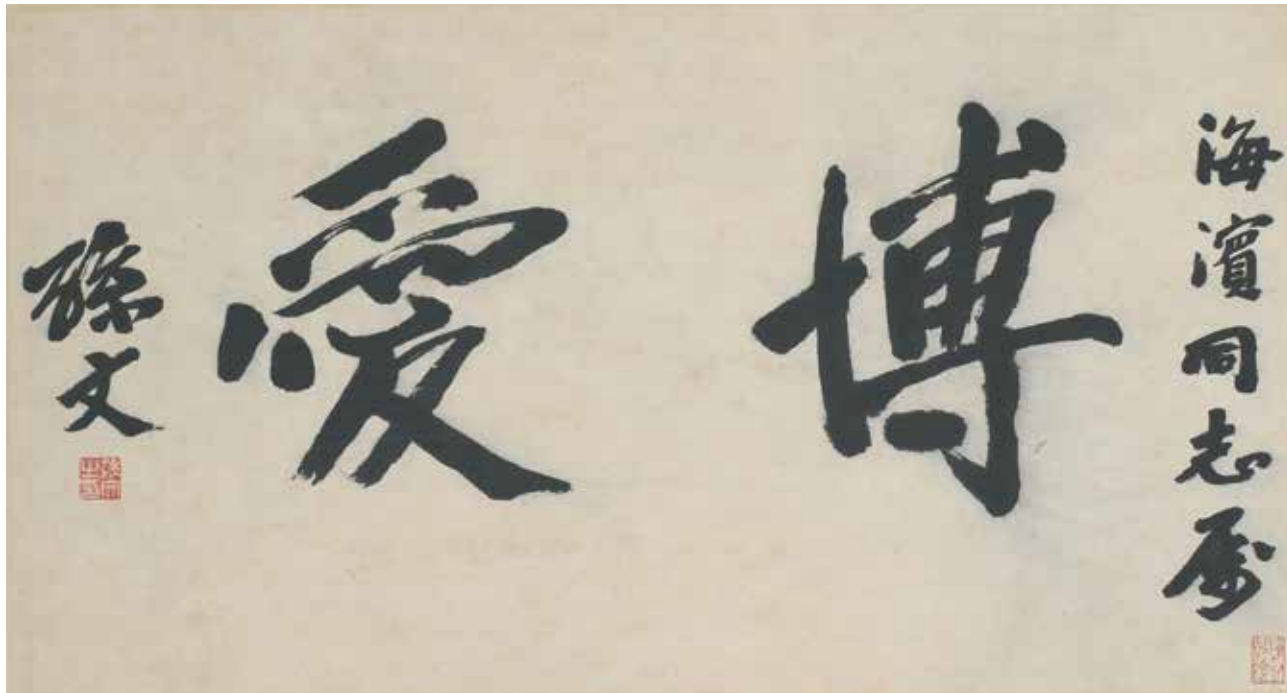 海濱同志屬
博愛
孫文